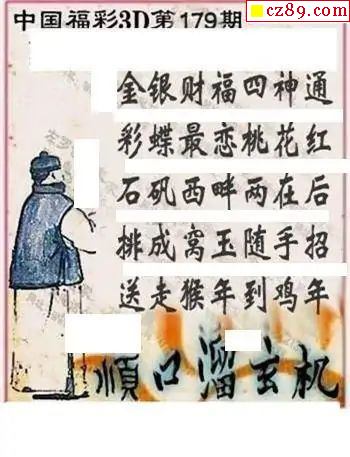 cz89.com
中国福彩3D第179期
金银财福四神通
彩蝶最恋桃花红
石矶西畔两在后
排成窝玉随手招
送走猴年到鸡年
顺口溜玄机